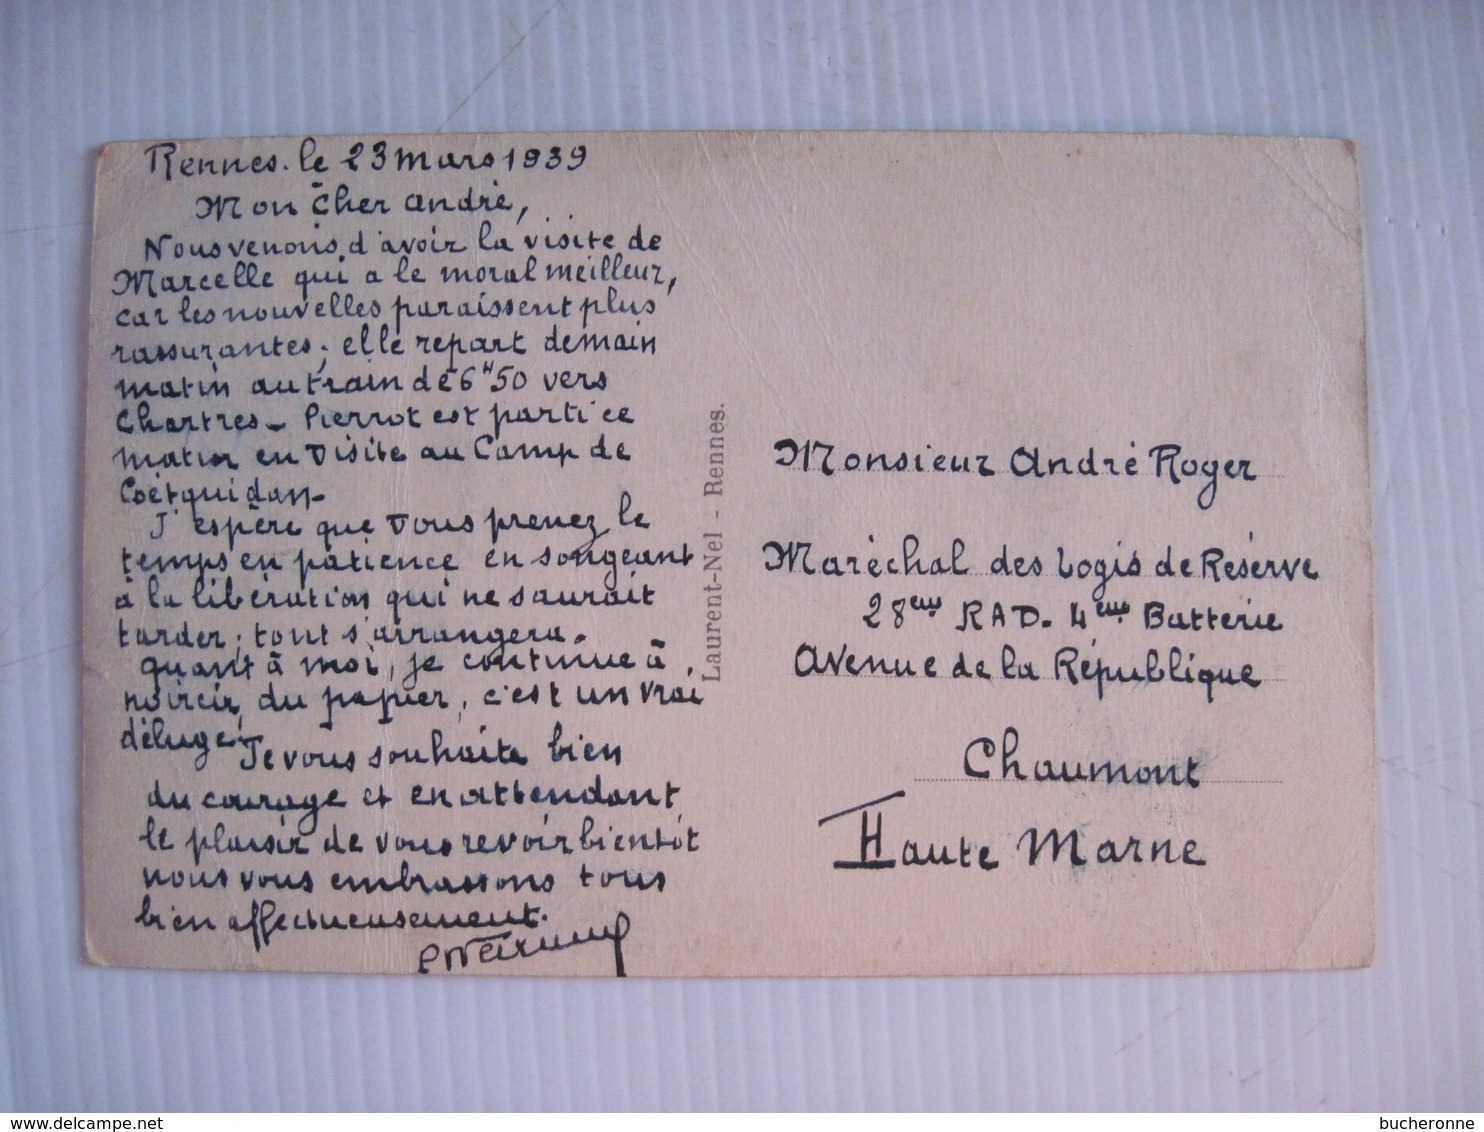 Rennes. le 23 mars 1939
Mon Cher André,
Nous venons d'avoir la visite de
Marcelle qui a le moral meilleur,
car les nouvelles paraissent plus
rassurantes; elle repart demain
matin au train de 6H50 vers
Chartres - Pierrot est parti ce
matin en visite au Camp de
Coëtquidan -
J'espère que vous prenez le
temps en patience en songeant
à la libération qui ne saurait
tarder; tout s'arrangera.
quant à moi, je continue à
noircir du papier, c'est un vrai
déluge!
Je vous souhaite bien
du courage et en attendant
le plaisir de vous revoir bientôt
nous vous embrassons tous
bien affectueusement.
Laurent-Nel - Rennes.
Monsieur André Roger
Maréchal des Logis de Réserve
28eme RAD. 4eme Batterie
Avenue de la République
Chaumont
Haute Marne
bucheronne